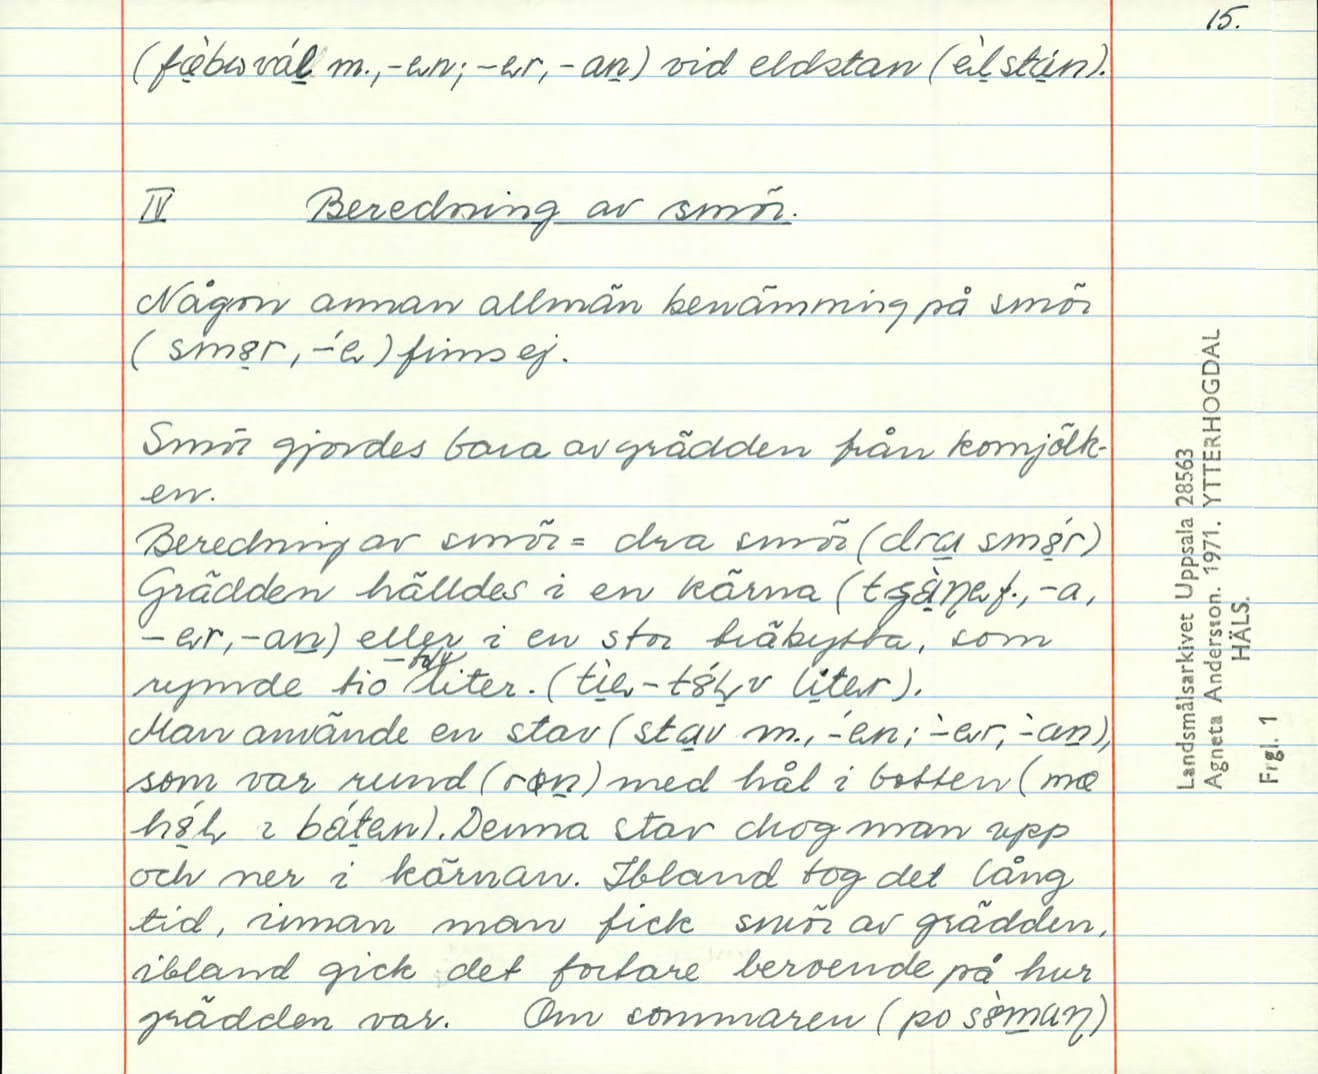 15.
(fæ̀bωvál m., -en; -er, -an) vid eldstan (èlstán).
IV Beredning av smör.
Någon annan allmän benämning på smör
(smør, -́e) finns ej.
Smör gjordes bara av grädden från komjölk-
en.
Beredning av smör = dra smör (dra smǿr)
Grädden hälldes i en kärna (f., -a,
-er, -an) eller i en stor träbytta, som
rymde tio - tolv liter. (tìe - liter).
Man använde en stav (stav m., -́en; -̀er, -̀an),
som var rund (ron) med hål i botten (mæ
i báten). Denna stav drog man upp
och ner i kärnan. Ibland tog det lång
tid, innan man fick smör av grädden,
ibland gick det fortare beroende på hur
grädden var. Om sommaren (po sø̀man)
Landsmålsarkivet Uppsala 28563
Agneta Andersson. 1971. YTTERHOGDAL
HÄLS.
Frgl. 1